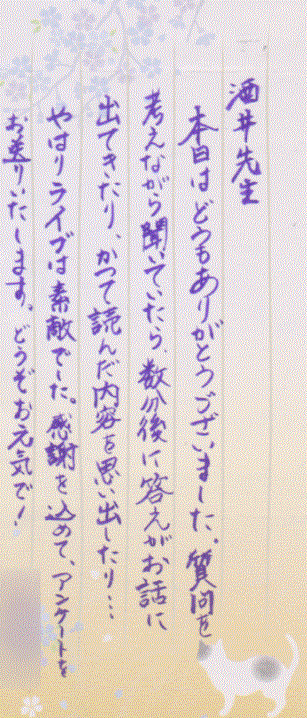 酒井先生
本日はどうもありがとうございました。質問を
考えながら聞いていたら、数分後に答えがお話に
出てきたり、かつて読んだ内容を思い出したり…
やはりライブは素敵でした。感謝を込めて、アンケートを
お送りいたします。どうぞお元気で！